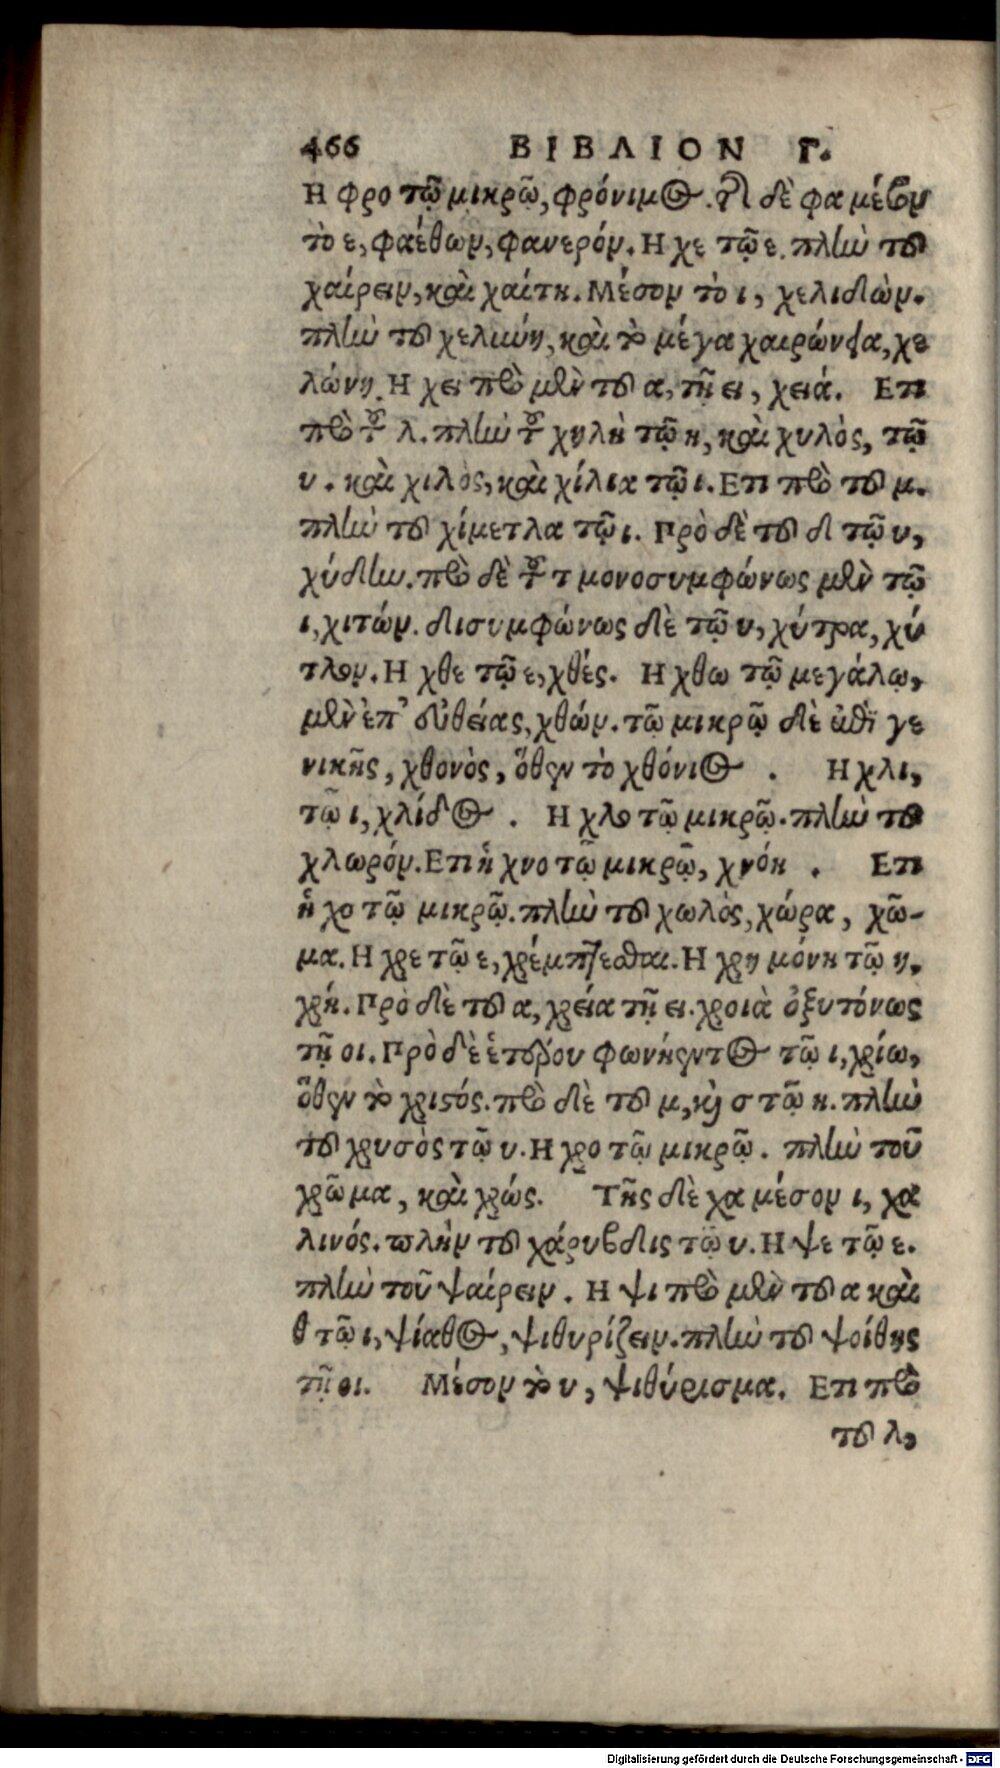 466 ΒΙΒΛΙΟΝ Γ.
Η φρο τῷ μικρῷ, φρόνιμος. τῆ δὲ φα μέσον
τὸ ε, φαέθων, φανερόν. Η χε τῷ ε. πλὴν τοῦ
χαίρειν, καὶ χαίτη. Μέσον τὸ ι, χελιδὼν.
πλὴν τοῦ χελώνη, καὶ τὸ μέγα χαιρώνεια, χε
λώνη. Η χει πρὸ μὲν τοῦ α, τῇ ει, χειά. Ετι
πρὸ τοῦ λ. πλὴν τοῦ χηλὴ τῷ η, καὶ χυλὸς, τῷ
υ. καὶ χιλὸς, καὶ χίλια τῷ ι. Ετι πρὸ τοῦ μ.
πλὴν τοῦ χίμετλα τῷ ι. Πρὸ δὲ τοῦ δ τῷ υ,
χύδην. πρὸ δὲ τοῦ τ μονοσυμφώνως μὲν τῷ
ι, χιτών. δισυμφώνως δὲ τῷ υ, χύτρα, χύ
τλον. Η χθε τῷ ε, χθές. Η χθω τῷ μεγάλῳ,
μὲν ἐπ' εὐθείας, χθών. τῷ μικρῷ δὲ ἐπὶ γε
νικῆς, χθονὸς, ὅθεν τὸ χθόνιος. Η χλι,
τῷ ι, χλίδος. Η χλο τῷ μικρῷ. πλὴν τοῦ
χλωρόν. Ετι ἡ χνο τῷ μικρῷ, χνόη. Ετι
ἡ χο τῷ μικρῷ. πλὴν τοῦ χωλὸς, χώρα, χῶ-
μα. Η χρε τῷ ε, χρέμπτεσθαι. Η χρη μόνη τῷ η,
χρή. Πρὸ δὲ τοῦ α, χρεία τῇ ει. χροιὰ ὀξυτόνως
τῇ οι. Πρὸ δὲ ἑτέρου φωνήεντος τῷ ι, χρίω,
ὅθεν τὸ χριστός. πρὸ δὲ τοῦ μ, καὶ σ τῷ η. πλὴν
τοῦ χρυσὸς τῷ υ. Η χρο τῷ μικρῷ. πλὴν τοῦ
χρῶμα, καὶ χρώς. Τῆς δὲ χα μέσον ι, χα
λινός. πλὴν τοῦ χάρυβδις τῷ υ. Η ψε τῷ ε.
πλὴν τοῦ ψαίρειν. Η ψι πρὸ μὲν τοῦ α καὶ
θ τῷ ι, ψίαθος, ψιθυρίζειν. πλὴν τοῦ ψοίθης
τῇ οι. Μέσον τὸ υ, ψιθύρισμα. Ετι πρὸ
τοῦ λ,
Digitalisierung gefördert durch die Deutsche Forschungsgemeinschaft - DFG